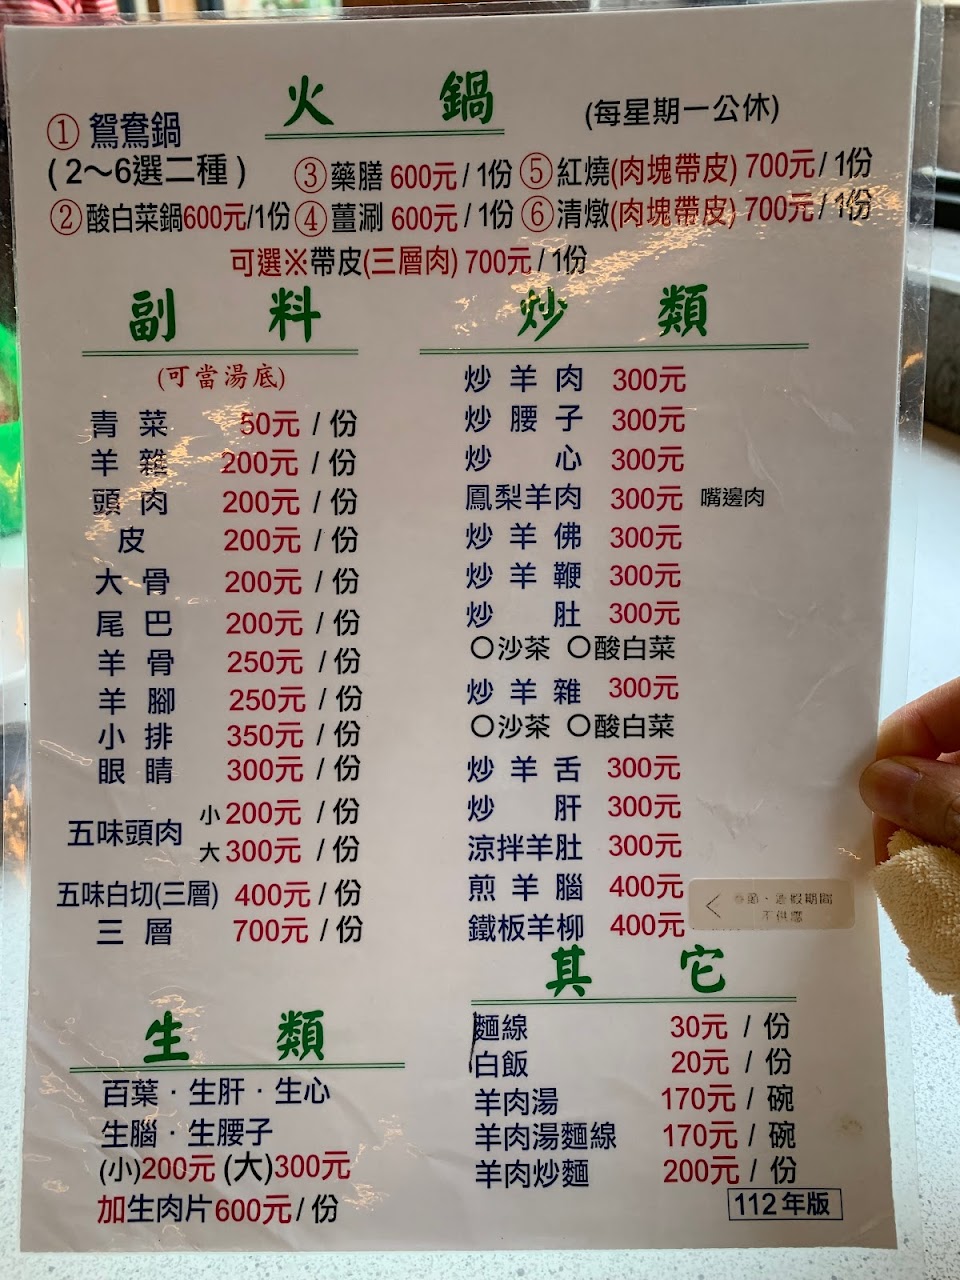 火鍋 (每星期一公休)
①鴛鴦鍋
(2～6選二種)
②酸白菜鍋600元/1份
③藥膳 600元/1份
④薑涮 600元/1份
⑤紅燒(肉塊帶皮) 700元/1份
⑥清燉(肉塊帶皮) 700元/1份
可選※帶皮(三層肉) 700元/1份
副料
(可當湯底)
青菜 50元/份
羊雜 200元/份
頭肉 200元/份
皮 200元/份
大骨 200元/份
尾巴 200元/份
羊骨 250元/份
羊腳 250元/份
小排 350元/份
眼睛 300元/份
五味頭肉 小200元/份
大300元/份
五味白切(三層) 400元/份
三層 700元/份
生類
百葉·生肝·生心
生腦·生腰子
(小)200元 (大)300元
加生肉片600元/份
炒類
炒羊肉 300元
炒腰子 300元
炒心 300元
鳳梨羊肉 300元 嘴邊肉
炒羊佛 300元
炒羊鞭 300元
炒肚 300元
○沙茶 ○酸白菜
炒羊雜 300元
○沙茶 ○酸白菜
炒羊舌 300元
炒肝 300元
涼拌羊肚 300元
煎羊腦 400元
鐵板羊柳 400元
＜ 春節、連假期間
不供應
其它
麵線 30元/份
白飯 20元/份
羊肉湯 170元/碗
羊肉湯麵線 170元/碗
羊肉炒麵 200元/份
112年版